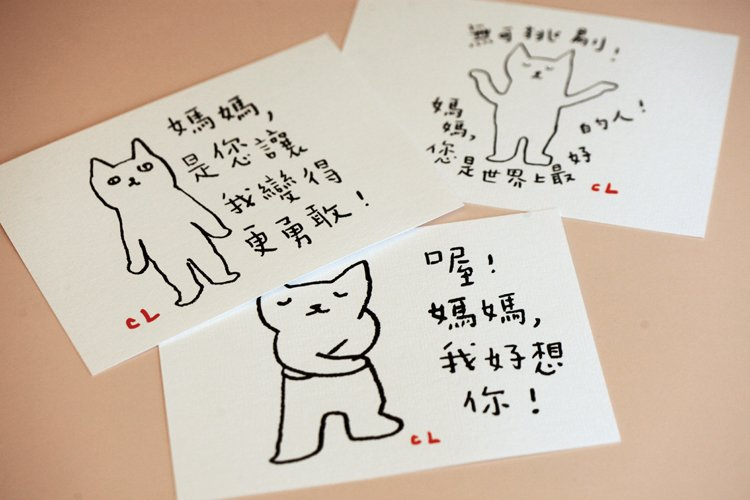 媽媽,
是您讓
我變得
更勇敢!
CL
無可挑剔!
媽
媽,
您是世界上最好
的人!
CL
喔!
媽媽,
我好想
你!
CL